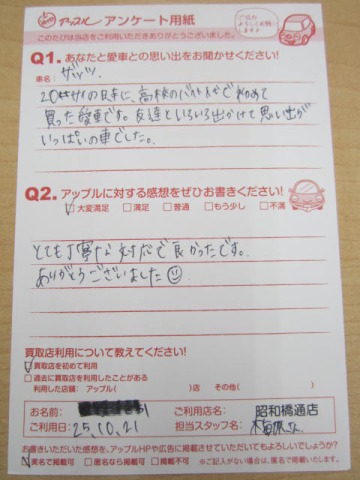 アップル アンケート用紙
このたびは当店をご利用いただきありがとうございました。
Q1. あなたと愛車との思い出をお聞かせください!
車名:
買った愛車です。友達といろいろ出かけて思い出が
いっぱいの車でした。
Q2. アップルに対する感想をぜひお書きください!
☑大変満足 □満足 □普通 □もう少し □不満
とても丁寧な対応で良かったです。
ありがとうございました
買取店利用について教えてください!
☑買取店を初めて利用
□過去に買取店を利用したことがある
利用した店舗: アップル( )店 その他( )
お名前: ご利用店名: 昭和橋通店
ご利用日: 25.10.21 担当スタッフ名:
お書きいただいた感想を、アップルHPや広告に掲載させていただいてもよろしいでしょうか?
☑実名で掲載可 □匿名なら掲載可 □掲載不可 ※ご記入がない場合は、匿名で掲載いたします。